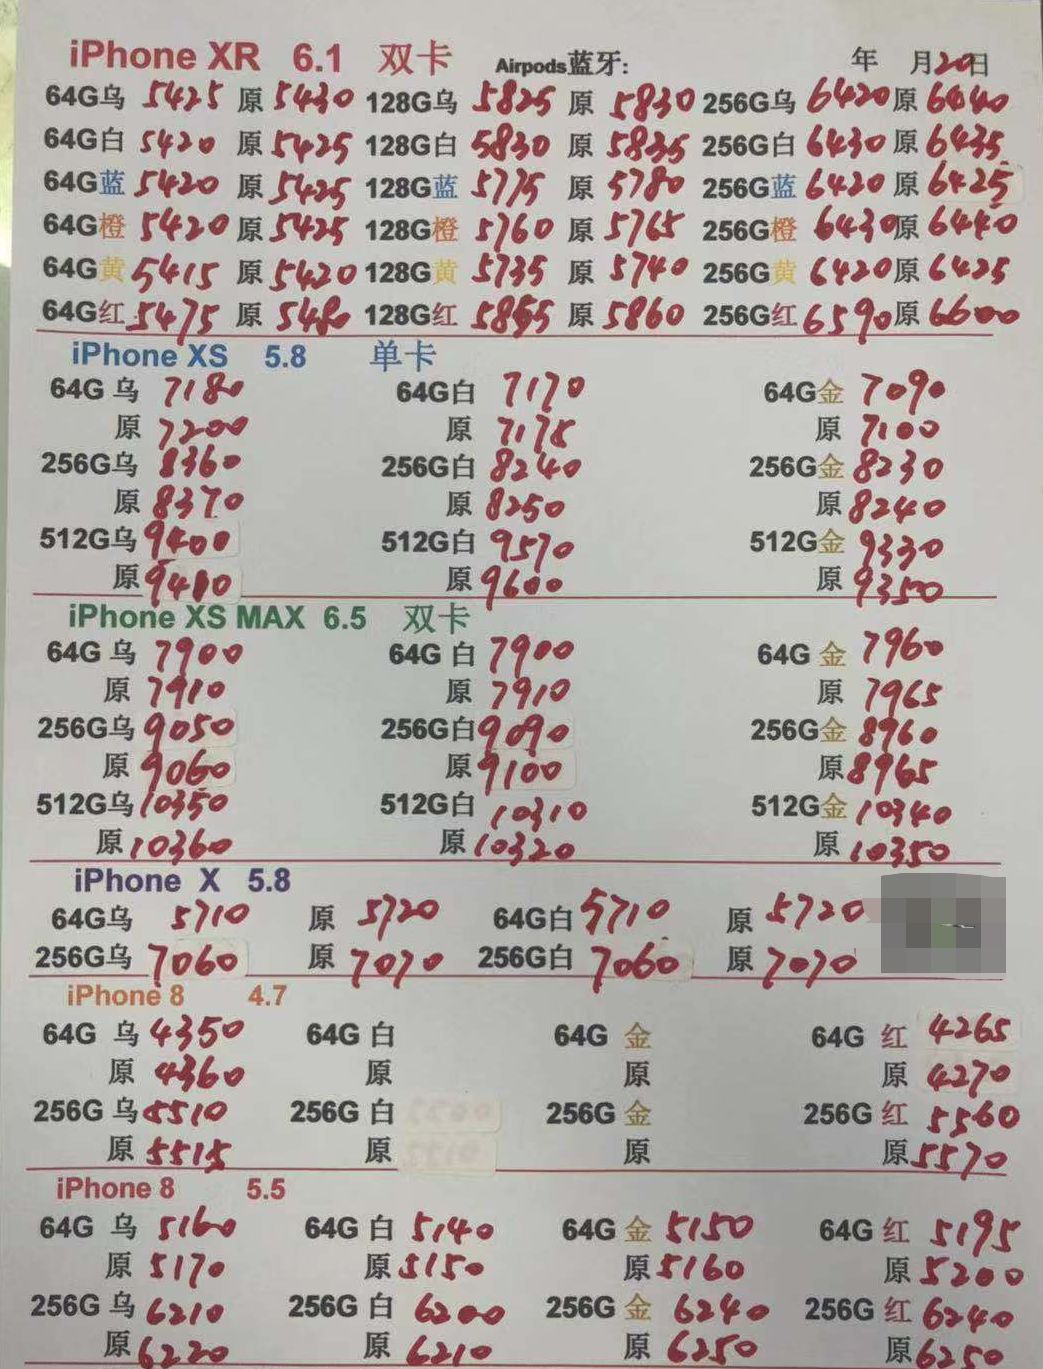 iPhone XR 6.1 双卡 Airpods蓝牙: 年 月20日
64G乌 5425 原 5430 128G乌 5825 原 5830 256G乌 6420 原 6440
64G白 5420 原 5425 128G白 5830 原 5835 256G白 6430 原 6435
64G蓝 5420 原 5425 128G蓝 5775 原 5780 256G蓝 6420 原 6425
64G橙 5420 原 5425 128G橙 5760 原 5765 256G橙 6430 原 6440
64G黄 5415 原 5420 128G黄 5735 原 5740 256G黄 6420 原 6425
64G红 5475 原 5480 128G红 5855 原 5860 256G红 6590 原 6600
iPhone XS 5.8 单卡
64G 乌 7180 64G白 7170 64G金 7090
原 7200 原 7175 原 7100
256G乌 8360 256G白 8240 256G金 8230
原 8370 原 8250 原 8240
512G乌 9400 512G白 9570 512G金 9330
原 9410 原 9600 原 9350
iPhone XS MAX 6.5 双卡
64G 乌 7900 64G 白 7900 64G 金 7960
原 7910 原 7910 原 7965
256G乌 9050 256G白 9090 256G金 8960
原 9060 原 9100 原 8965
512G乌 10350 512G白 10310 512G金 10340
原 10360 原 10320 原 10350
iPhone X 5.8
64G乌 5710 原 5720 64G白 5710 原 5720
256G乌 7060 原 7070 256G白 7060 原 7070
iPhone 8 4.7
64G 乌 4350 64G 白 64G 金 64G 红 4265
原 4360 原 原 原 4270
256G 乌 5510 256G 白 256G 金 256G 红 5560
原 5515 原 原 原 5570
iPhone 8 5.5
64G 乌 5160 64G 白 5140 64G 金 5150 64G 红 5195
原 5170 原 5150 原 5160 原 5200
256G 乌 6210 256G 白 6200 256G 金 6240 256G 红 6240
原 6220 原 6210 原 6250 原 6250